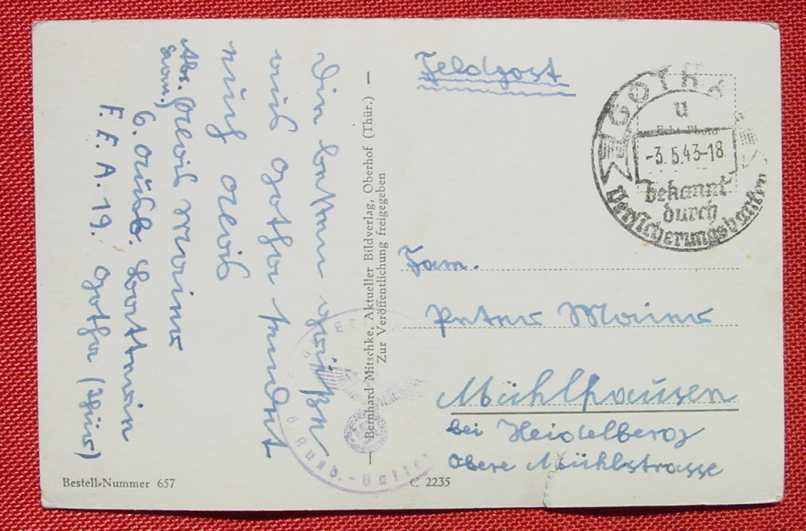 Die besten Grüße
aus Gotha sendet
euch Alois
Abs. Alois Maier
6. Ausb. Batterie
F. E. A. 19. Gotha (Thür)
Bernhard Mitschke, Aktueller Bildverlag, Oberhof (Thür.)
Zur Veröffentlichung freigegeben
Feldpost
GOTHA
u
Echte Photo
-3.5.43-18
bekannt
durch
Versicherungsbanken
Fam.
Peter Maier
Mühlhausen
bei Heidelberg
Obere Mühlstrasse
Bestell-Nummer 657
C 2235